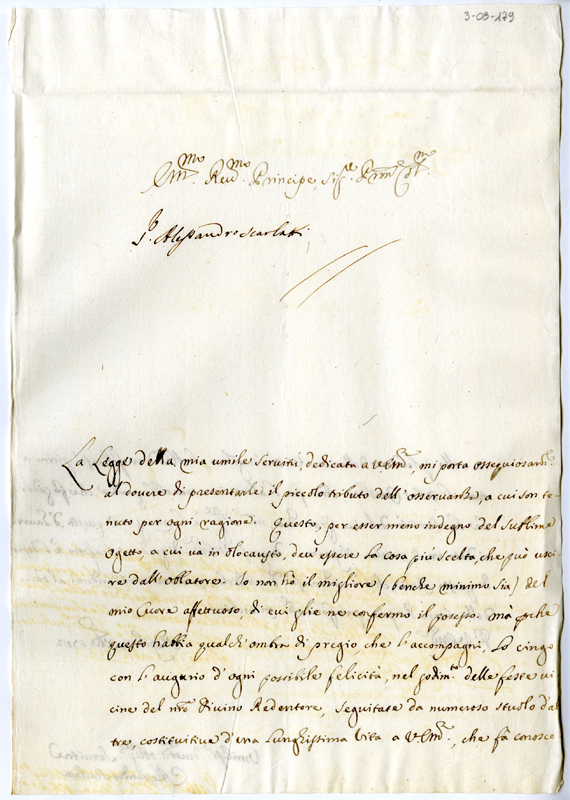 3-03-179
Em.mo Rev.mo Principe, Sig.re P.rone Col.mo
S.r Alessandro Scarlatti
La Legge della mia umile servitù, dedicata a V. Em.a, mi porta ossequiosam.te
al dovere di presentarle il piccolo tributo dell'osservanza, a cui son te-
nuto per ogni ragione. Questo, per esser meno indegno del sublime
ogetto, a cui và in olocausto, deu' essere la cosa più scelta, che può usci-
re dall'oblatore. Io non hò il migliore (benche minimo sia) del
mio Cuore affettuoso, di cui glie ne confermo il possesso. mà perche
questo habbia qualch'ombra di pregio che l'accompagni, Lo cingo
con l'augurio d'ogni possibile felicità, nel godim.to delle feste vi-
cine del n.ro Divino Redentore, seguitate da numeroso stuolo d'al-
tre, costituitive d'una Lunghissima Vita a V. Em.a, che fà conosce-